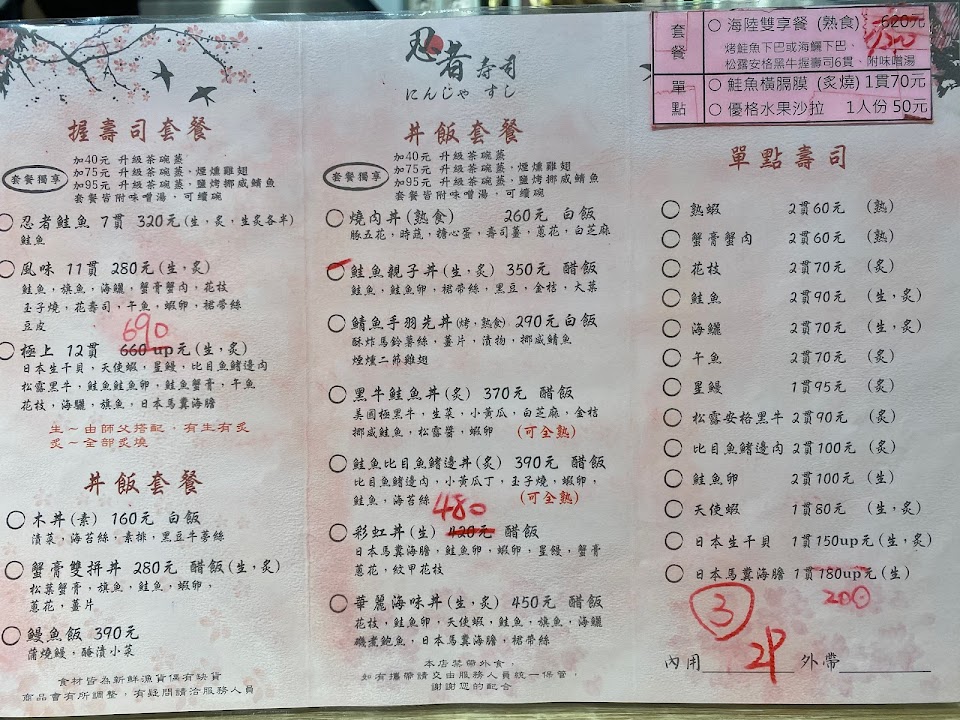 忍者壽司
にんじゃ すし
套餐
海陸雙享餐 (熟食) 620元
烤鮭魚下巴或海鱺下巴、
松露安格黑牛握壽司6貫、附味噌湯
單點
鮭魚橫膈膜 (炙燒) 1貫70元
優格水果沙拉 1人份 50元
握壽司套餐
套餐獨享
加40元 升級茶碗蒸
加75元 升級茶碗蒸,煙燻雞翅
加95元 升級茶碗蒸,鹽烤挪威鯖魚
套餐皆附味噌湯,可續碗
忍者鮭魚 7貫 320元(生,炙,生炙各半)
鮭魚
風味 11貫 280元(生,炙)
鮭魚,旗魚,海鱺,蟹膏蟹肉,花枝
玉子燒,花壽司,午魚,蝦卵,裙帶絲
豆皮
690
極上 12貫 660up元(生,炙)
日本生干貝,天使蝦,星鰻,比目魚鰭邊肉
松露黑牛,鮭魚鮭魚卵,鮭魚蟹膏,午魚
花枝,海鱺,旗魚,日本馬糞海膽
生~由師父搭配,有生有炙
炙~全部炙燒
丼飯套餐
木丼(素) 160元 白飯
漬菜,海苔絲,素排,黑豆牛蒡絲
蟹膏雙拼丼 280元 醋飯(生,炙)
松葉蟹膏,旗魚,鮭魚,蝦卵,
蔥花,薑片
鰻魚飯 390元
蒲燒鰻,醃漬小菜
食材皆為新鮮漁貨偶有缺貨
商品會有所調整,有疑問請洽服務人員
丼飯套餐
套餐獨享
加40元 升級茶碗蒸
加75元 升級茶碗蒸,煙燻雞翅
加95元 升級茶碗蒸,鹽烤挪威鯖魚
套餐皆附味噌湯,可續碗
燒肉丼(熟食) 260元 白飯
豚五花,時蔬,糖心蛋,壽司薑,蔥花,白芝麻
鮭魚親子丼(生,炙) 350元 醋飯
鮭魚,鮭魚卵,裙帶絲,黑豆,金桔,大葉
鯖魚手羽先丼(烤,熟食) 290元白飯
酥炸馬鈴薯絲,薑片,漬物,挪威鯖魚
煙燻二節雞翅
黑牛鮭魚丼(炙) 370元 醋飯
美國極黑牛,生菜,小黃瓜,白芝麻,金桔
挪威鮭魚,松露醬,蝦卵 (可全熟)
鮭魚比目魚鰭邊丼(炙) 390元 醋飯
比目魚鰭邊肉,小黃瓜丁,玉子燒,蝦卵,
鮭魚,海苔絲 (可全熟)
480
彩虹丼(生) 420元 醋飯
日本馬糞海膽,鮭魚卵,蝦卵,星鰻,蟹膏
蔥花,紋甲花枝
華麗海味丼(生,炙) 450元 醋飯
花枝,鮭魚卵,天使蝦,鮭魚,旗魚,海鱺
磯煮鮑魚,日本馬糞海膽,裙帶絲
本店禁帶外食,
如有攜帶請交由服務人員統一保管,
謝謝您的配合
單點壽司
熟蝦 2貫60元 (熟)
蟹膏蟹肉 2貫60元 (熟)
花枝 2貫70元 (生,炙)
鮭魚 2貫90元 (生,炙)
海鱺 2貫70元 (生,炙)
午魚 2貫70元 (炙)
星鰻 1貫95元 (炙)
松露安格黑牛 2貫90元 (炙)
比目魚鰭邊肉 2貫100元 (炙)
鮭魚卵 2貫100元 (生)
天使蝦 1貫80元 (生,炙)
日本生干貝 1貫150up元(生,炙)
日本馬糞海膽 1貫180up元(生)
200
3
內用 2P 外帶